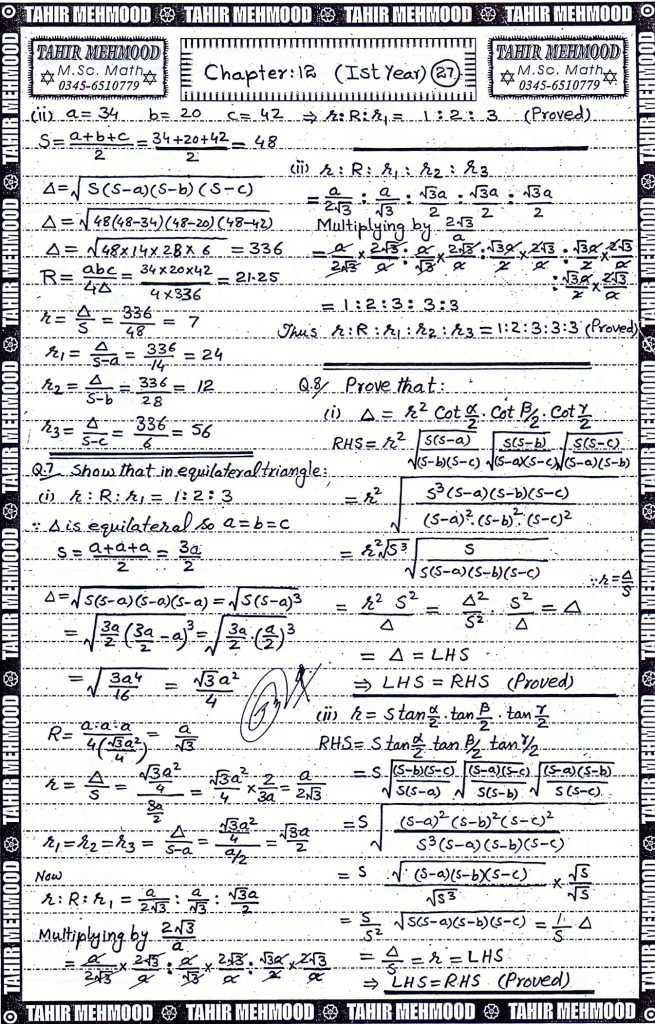 TAHIR MEHMOOD TAHIR MEHMOOD TAHIR MEHMOOD TAHIR MEHMOOD
TAHIR MEHMOOD
M.Sc. Math
0345-6510779
Chapter:12 (Ist Year) 27
TAHIR MEHMOOD
M.Sc. Math
0345-6510779
(ii) a= 34 b= 20 c= 42
S= a+b+c/2 = 34+20+42/2 = 48
Δ=√S(S-a)(S-b)(S-c)
Δ=√48(48-34)(48-20)(48-42)
Δ= √48×14×28×6 = 336
R= abc/4Δ = 34×20×42/4×336 = 21.25
r= Δ/S = 336/48 = 7
r₁= Δ/S-a = 336/14 = 24
r₂= Δ/S-b = 336/28 = 12
r₃= Δ/S-c = 336/6 = 56
Q.7 Show that in equilateral triangle:
(i) r:R:r₁ = 1:2:3
∵ Δ is equilateral so a=b=c
S= a+a+a/2 = 3a/2
Δ=√S(S-a)(S-a)(S-a) = √S(S-a)³
=√3a/2(3a/2-a)³ = √3a/2·(a/2)³
=√3a⁴/16 = √3a²/4
R= a·a·a/4(√3a²/4) = a/√3
r= Δ/S = √3a²/4/3a/2 = √3a²/4 × 2/3a = a/2√3
r₁=r₂=r₃= Δ/S-a = √3a²/4/a/2 = √3a/2
Now
r:R:r₁ = a/2√3 : a/√3 : √3a/2
Multiplying by 2√3/a
= a/2√3 × 2√3/a : a/√3 × 2√3/a : √3a/2 × 2√3/a
⇒ r:R:r₁ = 1:2:3 (Proved)
(ii) r:R:r₁:r₂:r₃
= a/2√3 : a/√3 : √3a/2 : √3a/2 : √3a/2
Multiplying by 2√3/a
= a/2√3 × 2√3/a : a/√3 × 2√3/a : √3a/2 × 2√3/a : √3a/2 × 2√3/a
: √3a/2 × 2√3/a
= 1:2:3:3:3
Thus r:R:r₁:r₂:r₃ = 1:2:3:3:3 (Proved)
Q.8/ Prove that:
(i) Δ = r² Cot α/2 · Cot β/2 · Cot γ/2
RHS= r² √S(S-a)/(S-b)(S-c) √S(S-b)/(S-a)(S-c) √S(S-c)/(S-a)(S-b)
= r² √S³(S-a)(S-b)(S-c)/(S-a)²·(S-b)²·(S-c)²
= r²√S³ √S/S(S-a)(S-b)(S-c)
∵ r=Δ/S
= r² S²/Δ = Δ²/S² · S²/Δ = Δ
= Δ = LHS
⇒ LHS = RHS (Proved)
(ii) r= S tan α/2 · tan β/2 · tan γ/2
RHS= S tan α/2 tan β/2 tan γ/2
= S √(S-b)(S-c)/S(S-a) √(S-a)(S-c)/S(S-b) √(S-a)(S-b)/S(S-c)
=S √(S-a)²(S-b)²(S-c)²/S³(S-a)(S-b)(S-c)
= S √(S-a)(S-b)(S-c)/√S³ × √S/√S
= S/S² √S(S-a)(S-b)(S-c) = 1/S Δ
= Δ/S = r = LHS
⇒ LHS=RHS (Proved)
TAHIR MEHMOOD TAHIR MEHMOOD TAHIR MEHMOOD TAHIR MEHMOOD